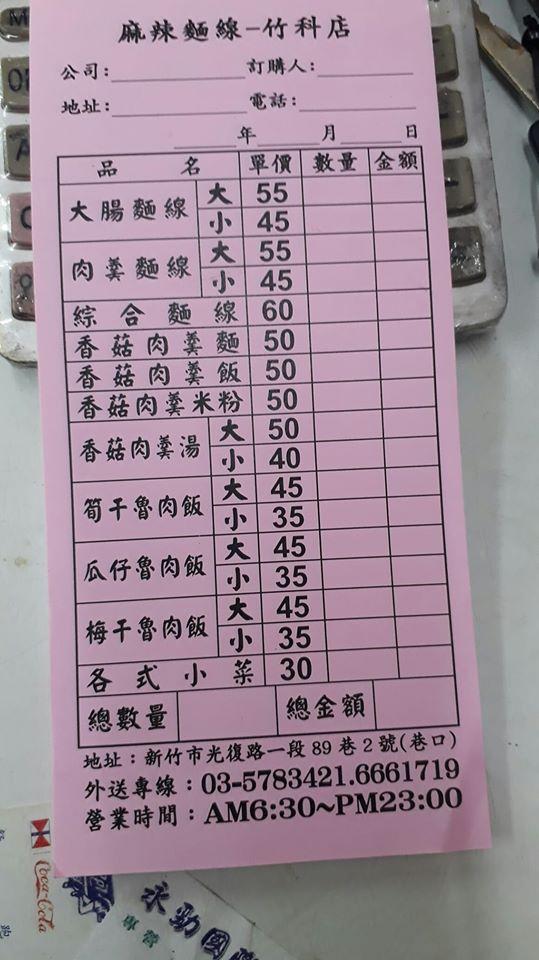 麻辣麵線-竹科店
公司: 訂購人:
地址: 電話:
年 月 日
品名 單價 數量 金額
大腸麵線 大 55
小 45
肉羹麵線 大 55
小 45
綜合麵線 60
香菇肉羹麵 50
香菇肉羹飯 50
香菇肉羹米粉 50
香菇肉羹湯 大 50
小 40
筍干魯肉飯 大 45
小 35
瓜仔魯肉飯 大 45
小 35
梅干魯肉飯 大 45
小 35
各式小菜 30
總數量 總金額
地址：新竹市光復路一段89巷2號(巷口)
外送專線：03-5783421.6661719
營業時間：AM6:30~PM23:00
Coca-Cola
永勁國